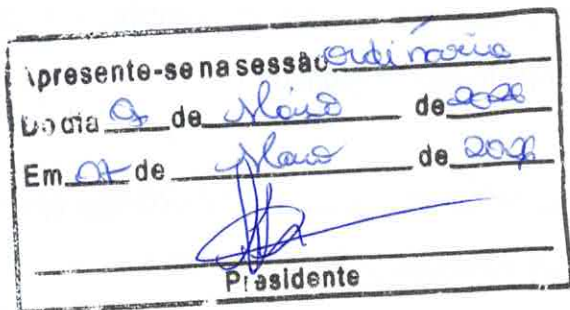 Apresente-se na sessão Ordinária
Do dia 9 de Março de
Em 07 de Março de
Presidente